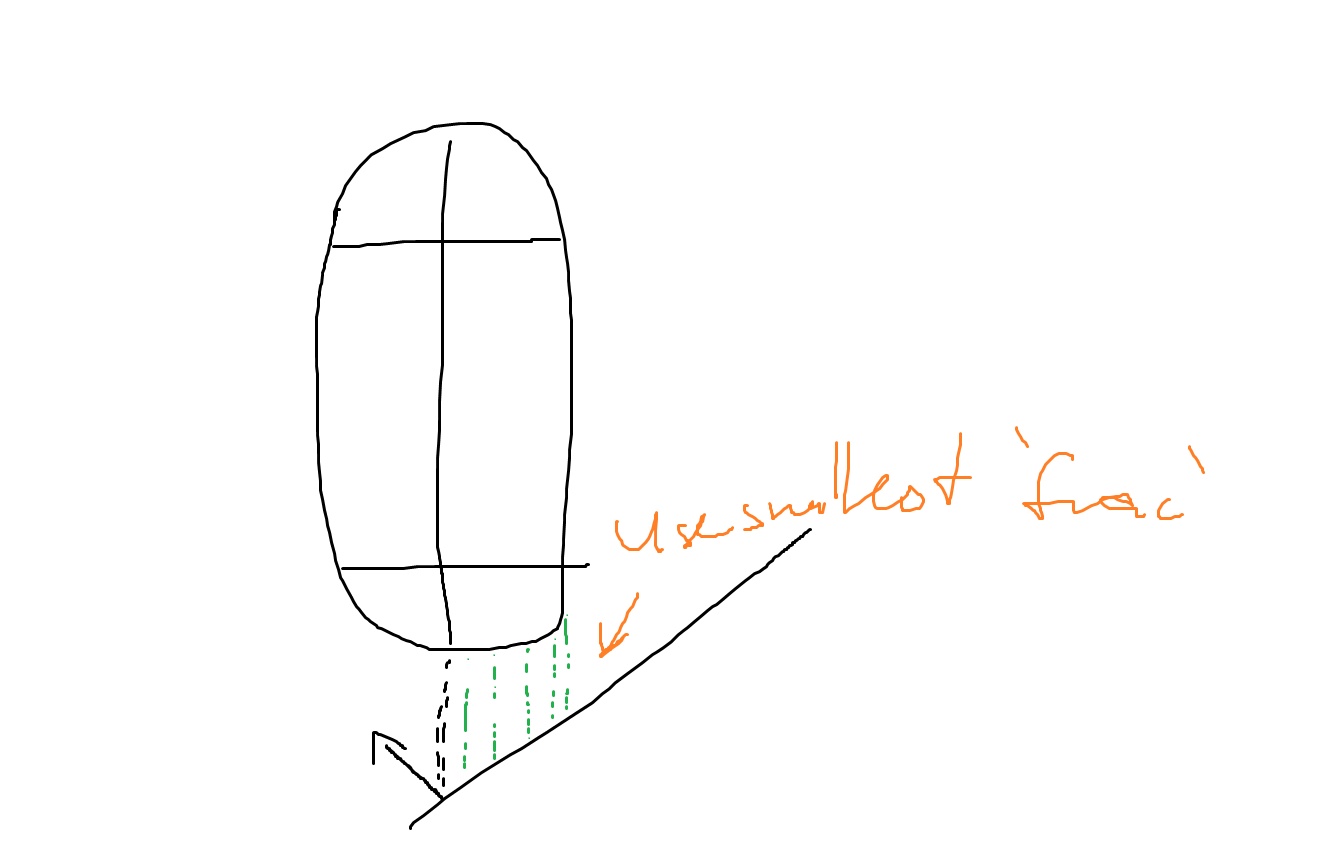 Use smallest 'frac'